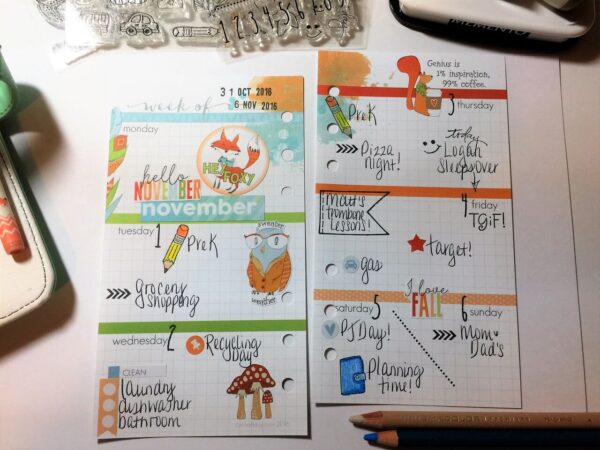 1 2 3 4 5 6
MEMENTO
week of
31 OCT 2016
6 NOV 2016
monday
HEY FOXY
hello
NOVEMBER
november
tuesday
1
PreK
grocery
shopping
sweater
weather
wednesday
2
Recycling
Day
CLEAN
laundry
dishwasher
bathroom
Genius is
1% inspiration,
99% coffee.
3
thursday
PreK
Pizza
night!
today
Logan
sleepover
4
friday
TGIF!
Matt's
trombone
Lessons!
target!
gas
I love
FALL
saturday
5
PJ Day!
Planning
time!
6
sunday
Mom
Dad's